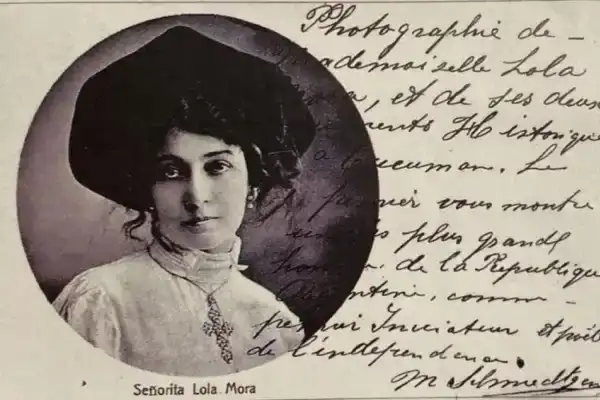 Photographie de -
Mademoiselle Lola
Mora, et de ses deux
Historique
a Tucuman. Le
premier vous montre
plus grand
de la Republique
Argentine, comme -
Iniciateur et
de l'independance
M Schmedtgen
Señorita Lola Mora